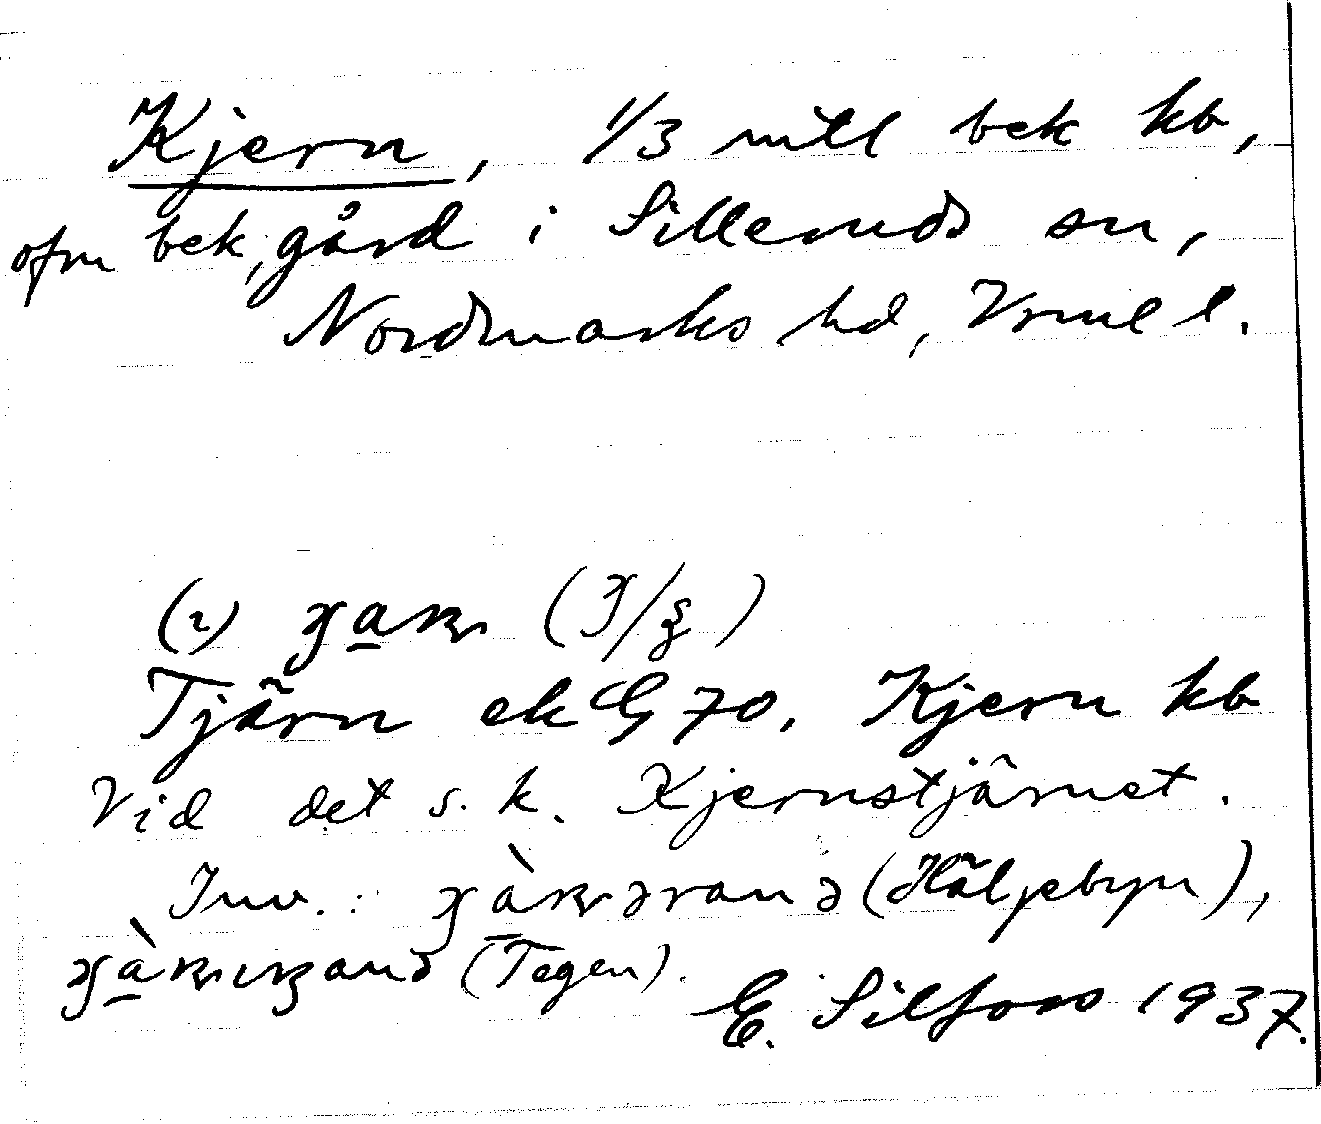 Kjern, 1/3 mtl bek kb,
ofm bek, gård i Silleruds sn,
Nordmarks hd, Vrml l.
(2)
Tjärn ek G 70, Kjern kb
Vid det s. k. Kjernstjärnet.
Inv.: (Häljebyn),
(Tegen).
E. Silfors 1937.